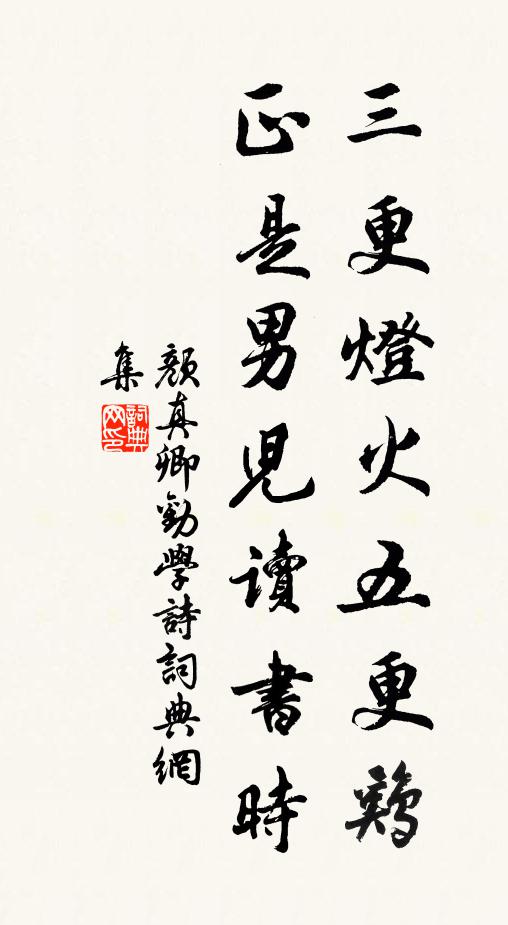 三更燈火五更鷄
正是男児讀書時
顔真卿勸學詩詞典網
集
詞典网印